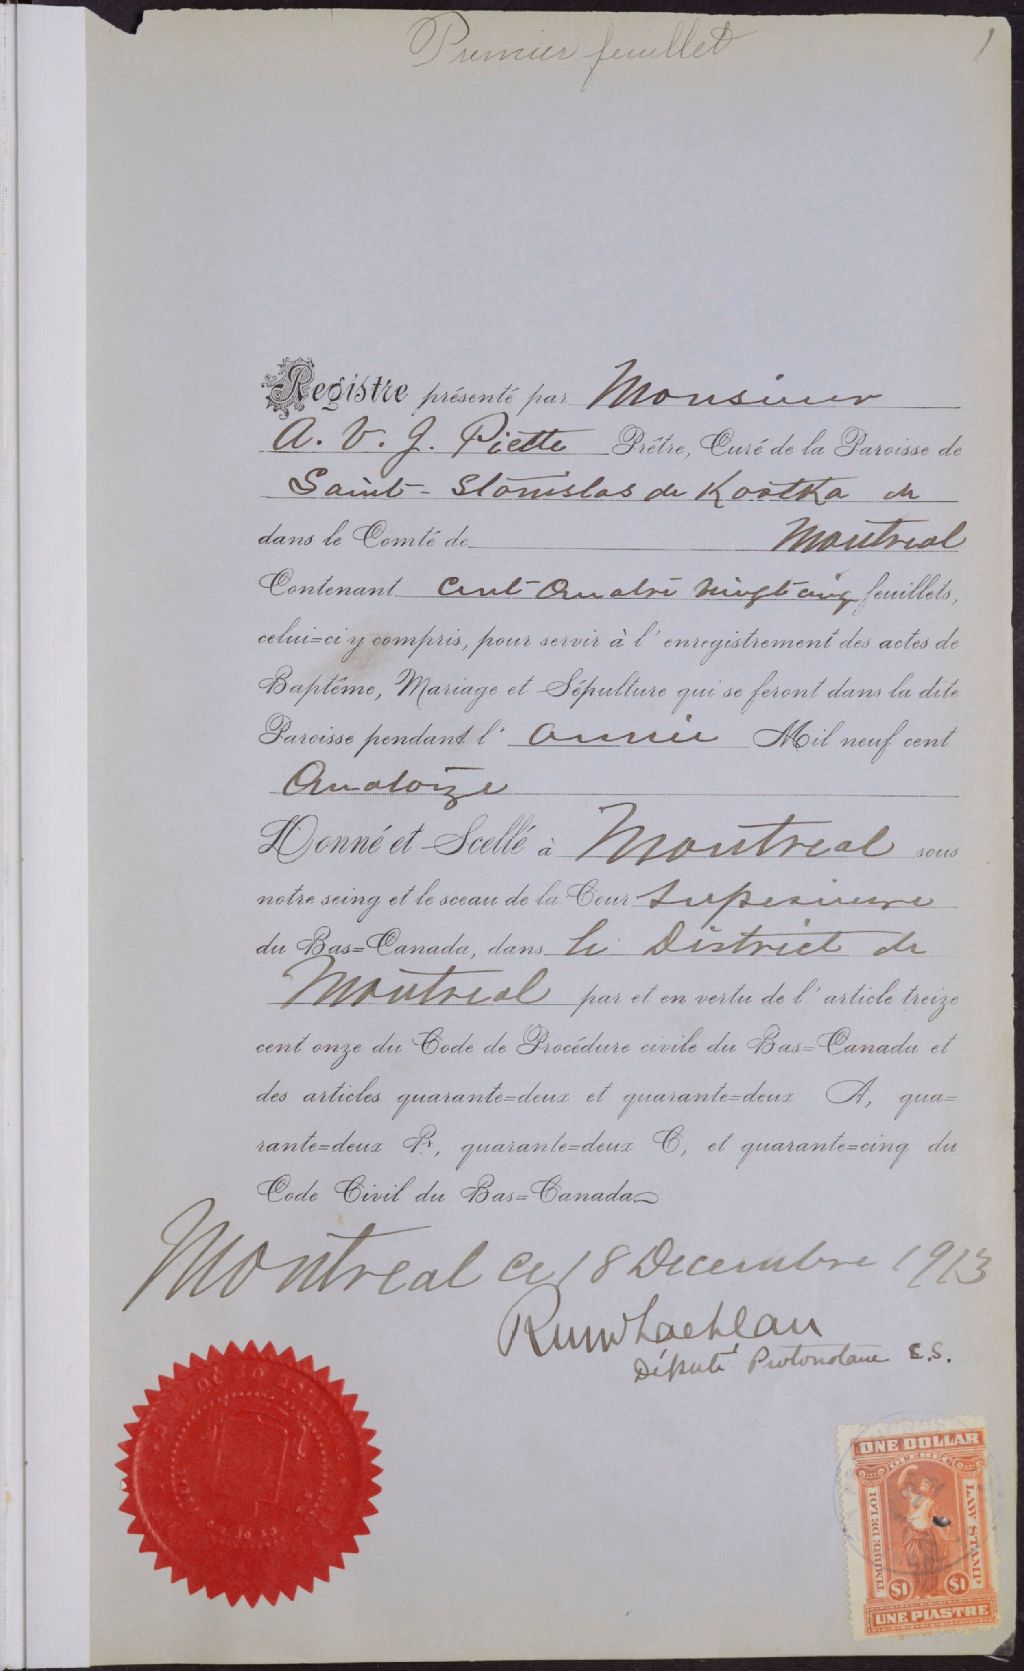 Premier feuillet
1
Registre présenté par Monsieur
A. V. J. Piette Prêtre, Curé de la Paroisse de
Saint-Stanislas de Kostka de
dans le Comté de Montreal
Contenant cent quatre vingt cinq feuillets,
celui=ci y compris, pour servir à l'enregistrement des actes de
Baptême, Mariage et Sépulture qui se feront dans la dite
Paroisse pendant l'année Mil neuf cent
Quatorze
Donné et Scellé à Montreal sous
notre seing et le sceau de la Cour Superieure
du Bas=Canada, dans le District de
Montreal par et en vertu de l'article treize
cent onze du Code de Procédure civile du Bas=Canada et
des articles quarante=deux et quarante=deux A, qua=
rante=deux B, quarante=deux C, et quarante=cinq du
Code Civil du Bas=Canada
Montreal ce 18 Decembre 1913
Député Protonotaire C.S.
ONE DOLLAR
QUEBEC
TIMBRE DE LOI
LAW STAMP
$1 $1
UNE PIASTRE